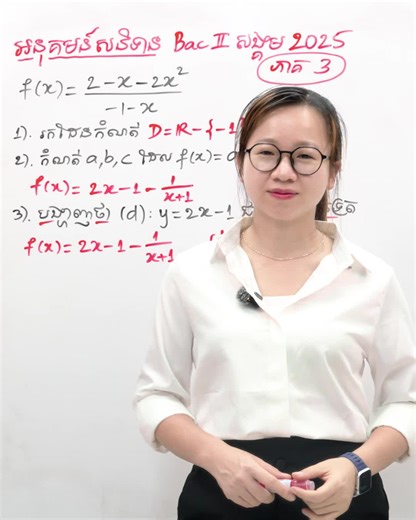 អនុគមន៍សនិទាន Bac II សង្គម 2025
ភាគ 3
f(x) = (2-x-2x²)/(-1-x)
1). រកដែនកំណត់ D = IR - {-1
2). កំណត់ a,b,c ដែល f(x) = a
f(x) = 2x-1 - 1/(x+1)
3). បង្ហាញថា (d): y = 2x-1 ជា
f(x) = 2x-1 - 1/(x+1)